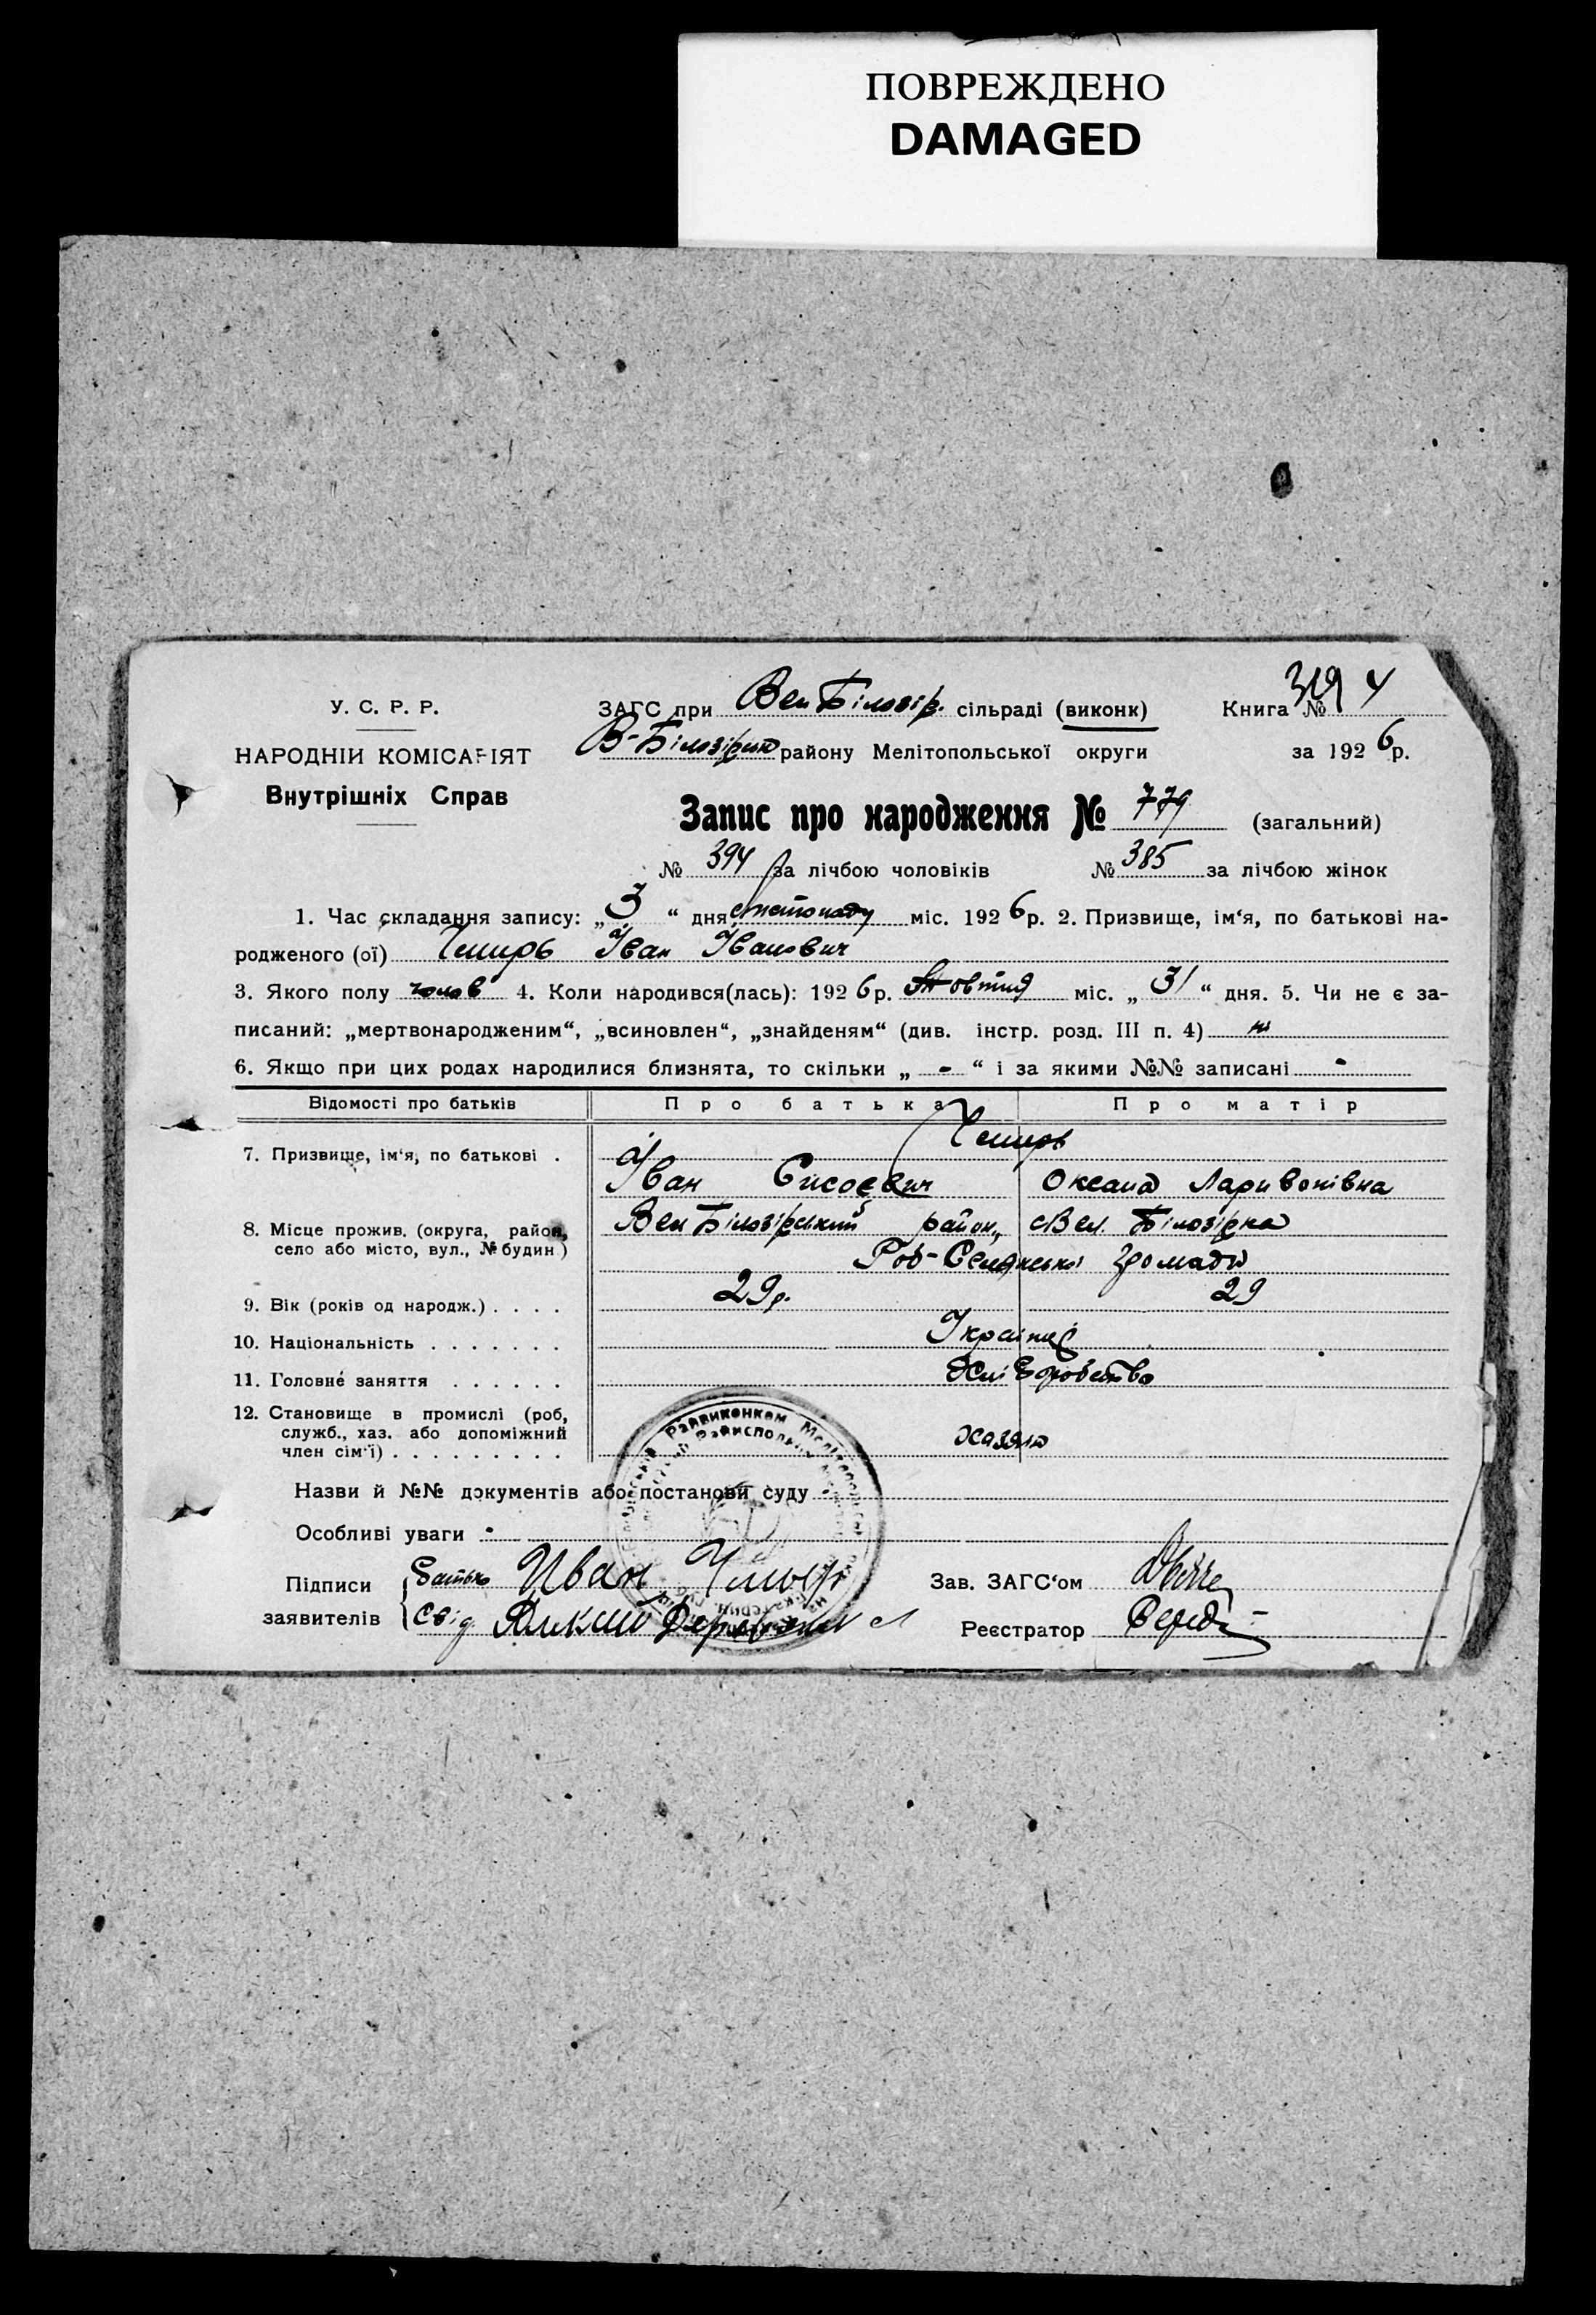 ПОВРЕЖДЕНО
DAMAGED
У. С. Р. Р.
НАРОДНІИ КОМІСАРІЯТ
Внутрішніх Справ
ЗАГС при Вел Білозір. сільраді (виконк)
В-Білозірськ району Мелітопольської округи
Книга №
за 1926 р.
Запис про народження № 779 (загальний)
№ 394 за лічбою чоловіків № 385 за лічбою жінок
1. Час складання запису: „3“ дня листопаду міс. 1926 р. 2. Призвище, ім‘я, по батькові на-
родженого (ої) Чмирь Іван Іванович
3. Якого полу чолов 4. Коли народився(лась): 1926 р. Жовтня міс. „31“ дня. 5. Чи не є за-
писаний: „мертвонародженим“, „всиновлен“, „знайденям“ (див. інстр. розд. III п. 4) ні
6. Якщо при цих родах народилися близнята, то скільки „ - “ і за якими №№ записані -
Відомості про батьків Про батька Про матір
7. Призвище, ім‘я, по батькові . Чмирь
Іван Сисоєвич Оксана Ларивонівна
8. Місце прожив. (округа, район, село або місто, вул., № будин.) Вел Білозірський район, с Вел. Білозірка
Роб-Селянської громади
9. Вік (років од народж.) . . . . 29 р. 29
10. Національність . . . . . . . Українці
11. Головне заняття . . . . . . Хліборобство
12. Становище в промислі (роб,
служб., хаз. або допоміжний
член сім‘ї) . . . . . . . . . хазяїн
Назви й №№ документів або постанови суду -
Особливі уваги -
Підписи заявителів Батько Иван Чмырь
свід
Зав. ЗАГС‘ом
Реєстратор